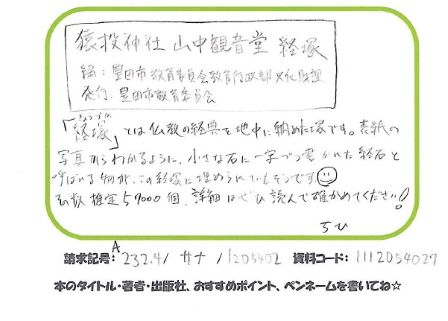 猿投神社 山中観音堂 経塚
編：豊田市教育委員会教育行政部文化財課
発行：豊田市教育委員会
きょうづか
「経塚」とは仏教の経典を地中に納めた塚です。表紙の
写真からわかるように、小さな石に一字づつ書かれた経石と
呼ばれる物が、この経塚に埋められていたそうです
その数 推定59000個、詳細はぜひ読んで確かめてください！
ちひ
請求記号：A232.41 サナ /1205402 資料コード：1112054027
本のタイトル・著者・出版社、おすすめポイント、ペンネームを書いてね☆